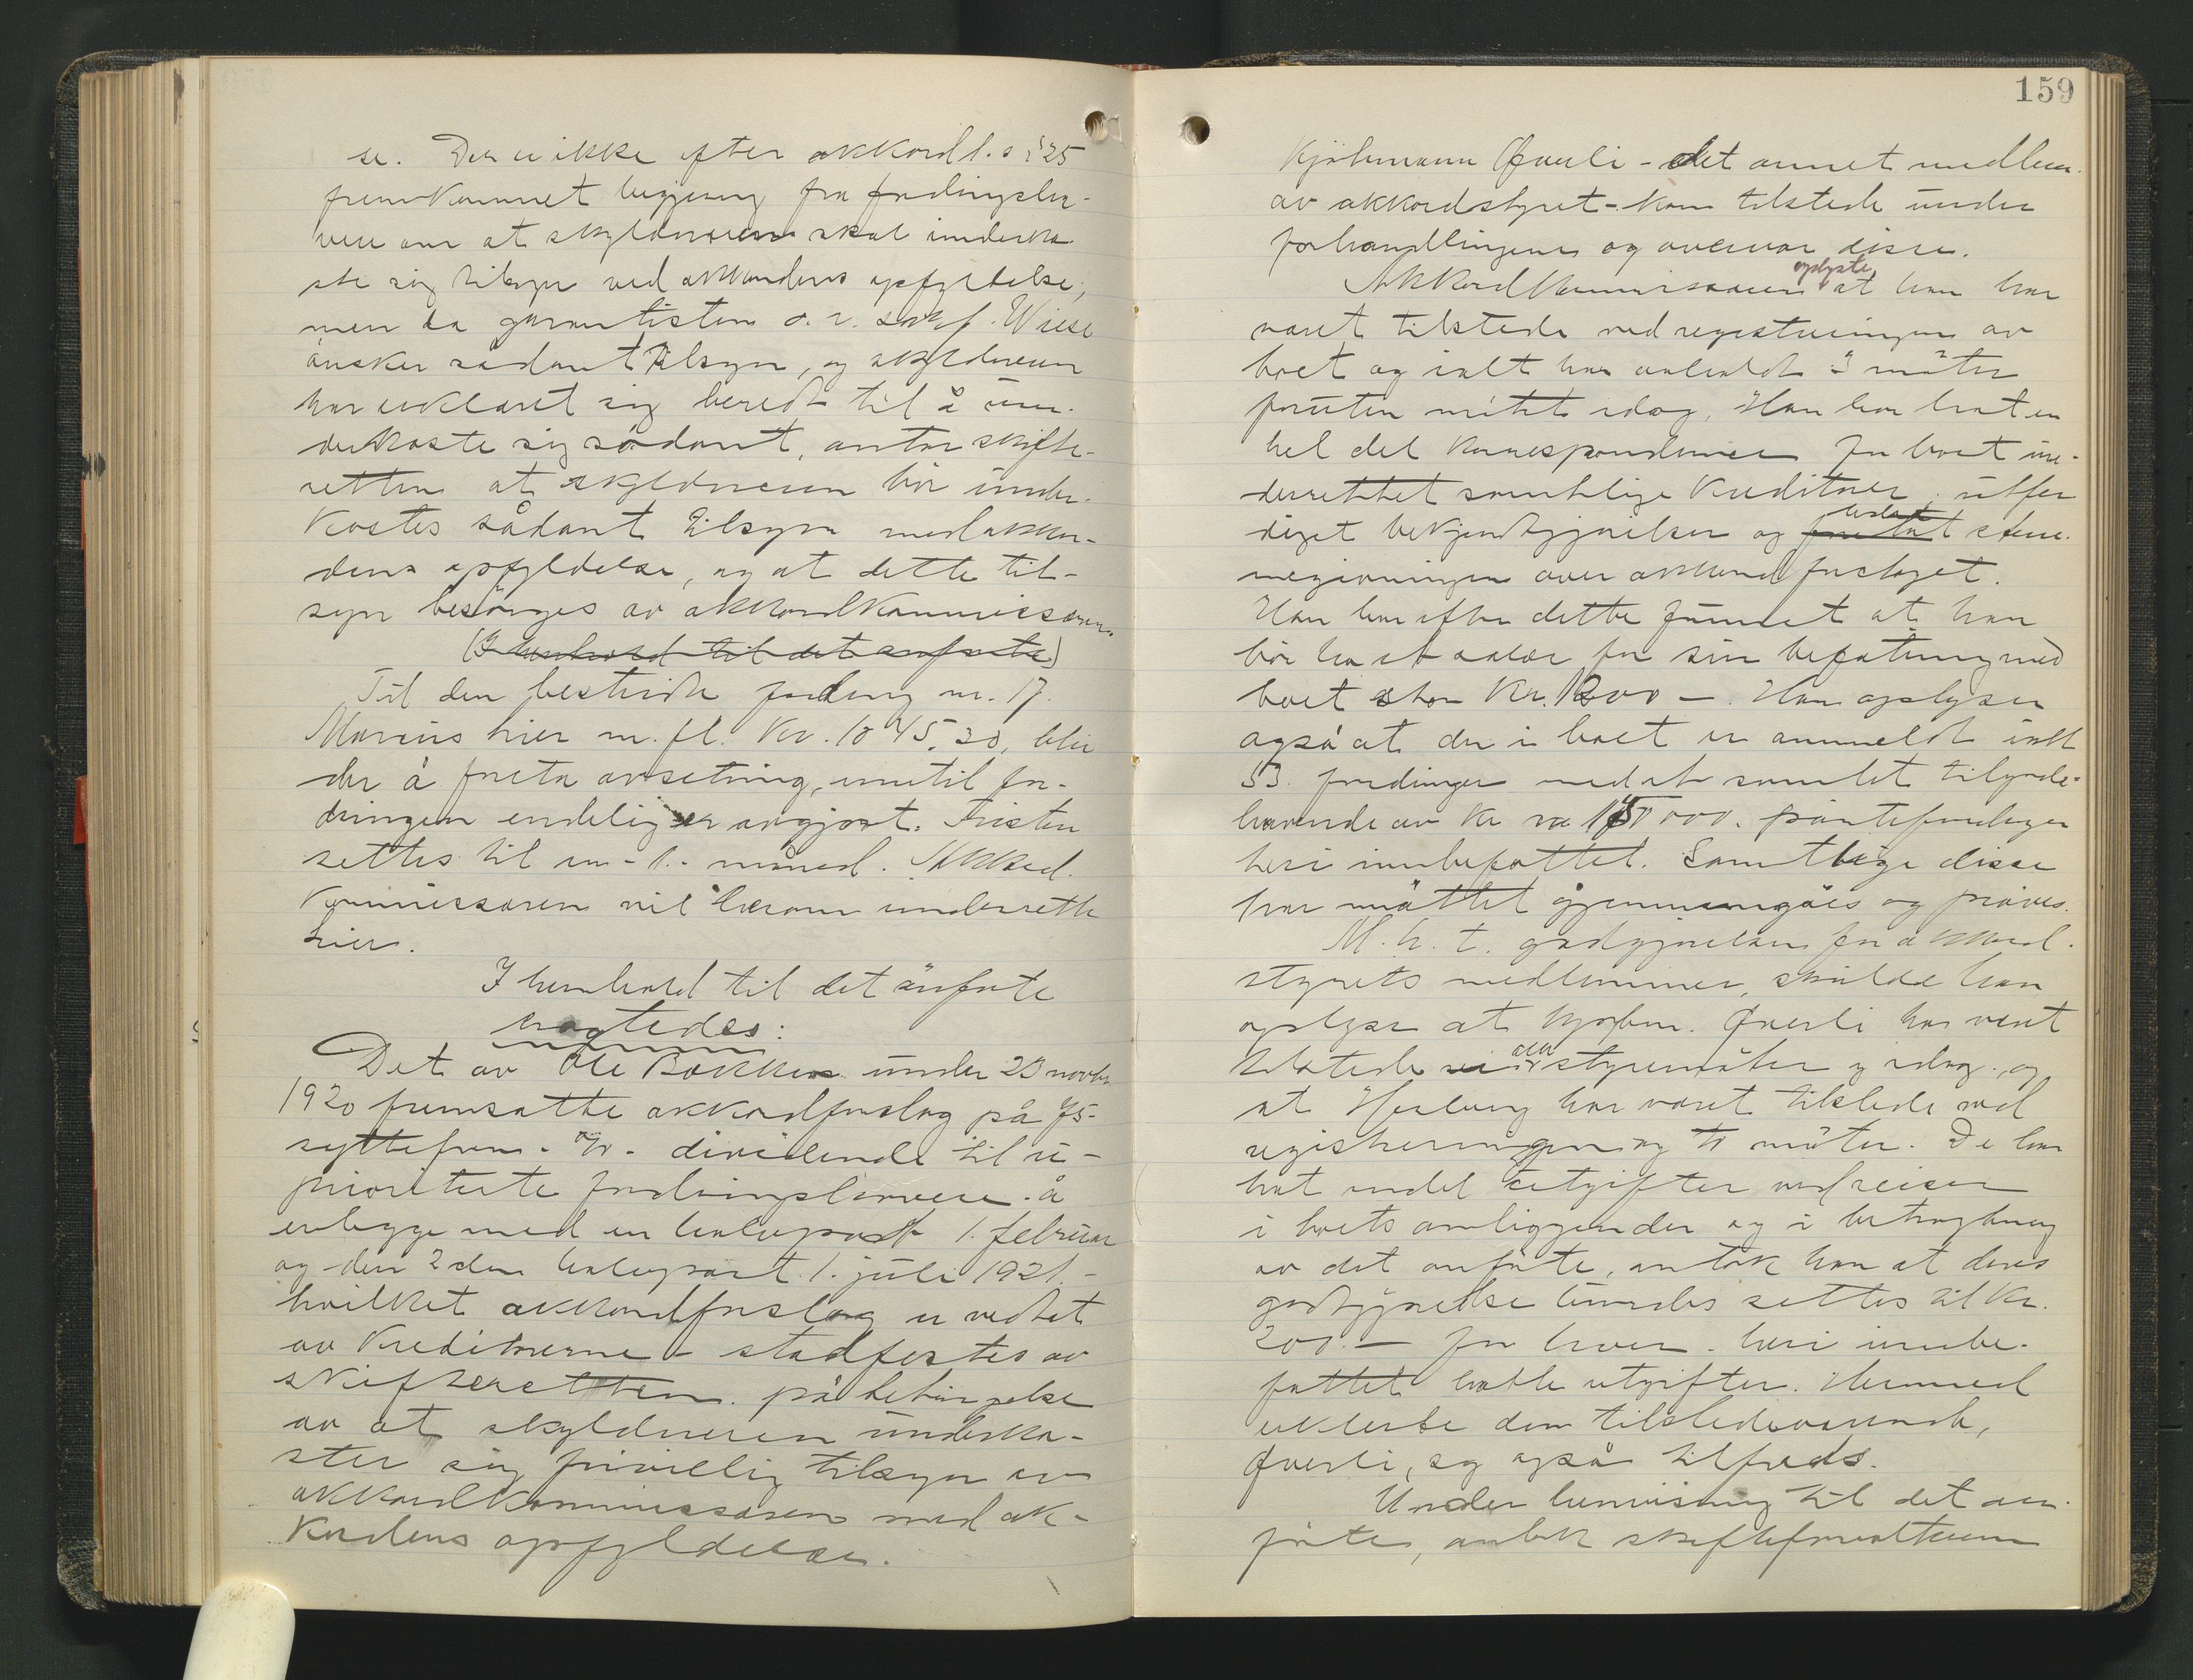 se. Der er ikke efter akkordl.s § 25
fremkommet begjæring fra fordringsha-
vere om at skyldneren skal underka-
ste sig tilsyn ved akkordens opfyldelse;
men da garantisten o.r. sakf. Wiese
ønsker sådant tilsyn, og skyldneren
har erklæret sig beredt til å un-
derkaste sig sådant, antar skifte-
retten at skyldneren bör under-
kastes sådant tilsyn med akkor-
dens opfyldelse, og at dette til-
syn besörges av akkordkommissæren.
(I henhold til det anførte)
Til den bestridte fordring nr. 17.
Marius hier m.fl. kr. 1045,30, blir
der å foreta avsetning, inntil for-
dringen endelig er avgjort. Fristen
settes til en - 1 - måned. Akkord-
kommissæren vil herom underrette
hier.
I henhold til det anførte
eragtedes:
Det av Ole Bakken under 23 novbr.
1920 fremsatte akkordforslag på 75-
syttefem - % - dividende til u-
prioriterte fordringshavere - å
erlegge med en halvpart 1. februar
og den 2den halvpart 1. juli 1921 -
hvilket akkordforslag er vedtat
av kreditorerne - stadfestes av
skifteretten på betingelse
av at skyldneren underka-
ster sig frivillig tilsyn av
akkordkommissæren med ak-
kordens opfyldelse.
159
Kjöbmann Øverli - det annet medlem
av akkordstyret - kom tilstede under
forhandlingene og overvar disse.
Akkordkommissæren oplyste at han har
været tilstede ved registreringen av
boet og ialt har avholdt 3 möter
foruten mötet idag. Han har hat en
hel del korrespondence for boet un-
derrettet samtlige kreditorer, utfer-
diget bekjendtgjörelser og foretat ledet stem-
megivningen over akkordforslaget.
Han har efter dette funnet at han
bör ha et salær for sin befatning med
boet stor kr. 1200 -. Han oplyser
også at der i boet er anmeldt ialt
53 fordringer med et samlet tilgode-
havende av kr ca 145000. pantefordringer
heri innbefattet. Samtlige disse
har måttet gjennemgåes og pröves.
M.h.t. godtgjörelsen for akkord-
styrets medlemmer, skulde han
oplyse at kjöbm. Øverli har været
tilstede ved alle styremöter og idag, og
at Herberg har været tilstede ved
registreringen og to möter. De har
hat endel utgifter ved reiser
i boets anliggender og i betragtning
av det anförte, antok han at deres
godtgjörelse burdes settes til kr.
200.- for hver - heri innbe-
fattet hatte utgifter. Hermed
erklærte den tilstedeværende,
Øverli, sig også tilfreds.
Under henvisning til det an-
förte, antok skifteforvalteren